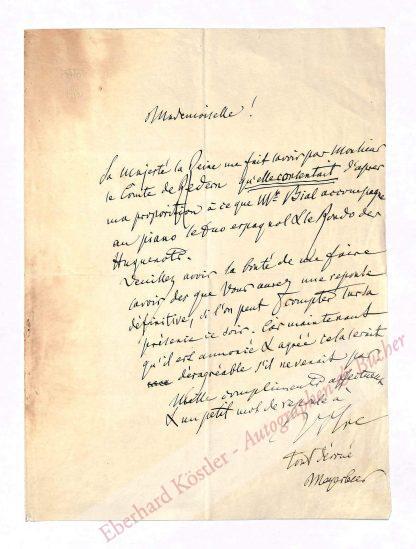 Mademoiselle!
Sa Majesté la Reine me fait savoir par Monsieur
le Comte de Redern qu'elle consentait d'après
ma proposition à ce que Mr. Bial accompagne
au piano le duo espagnol & le Rondo des
Huguenots.
Veuillez avoir la bonté de me faire
savoir dès que Vous aurez une réponse
définitive, si l'on peut compter sur sa
présence ce soir. Car maintenant
qu'il est annoncé & agréé cela serait
désagréable s'il ne venait pas.
Mille compliments affectueux
& un petit mot de réponse à
Votre
tout dévoué
Meyerbeer
Eberhard Köstler - Autographen & Bücher